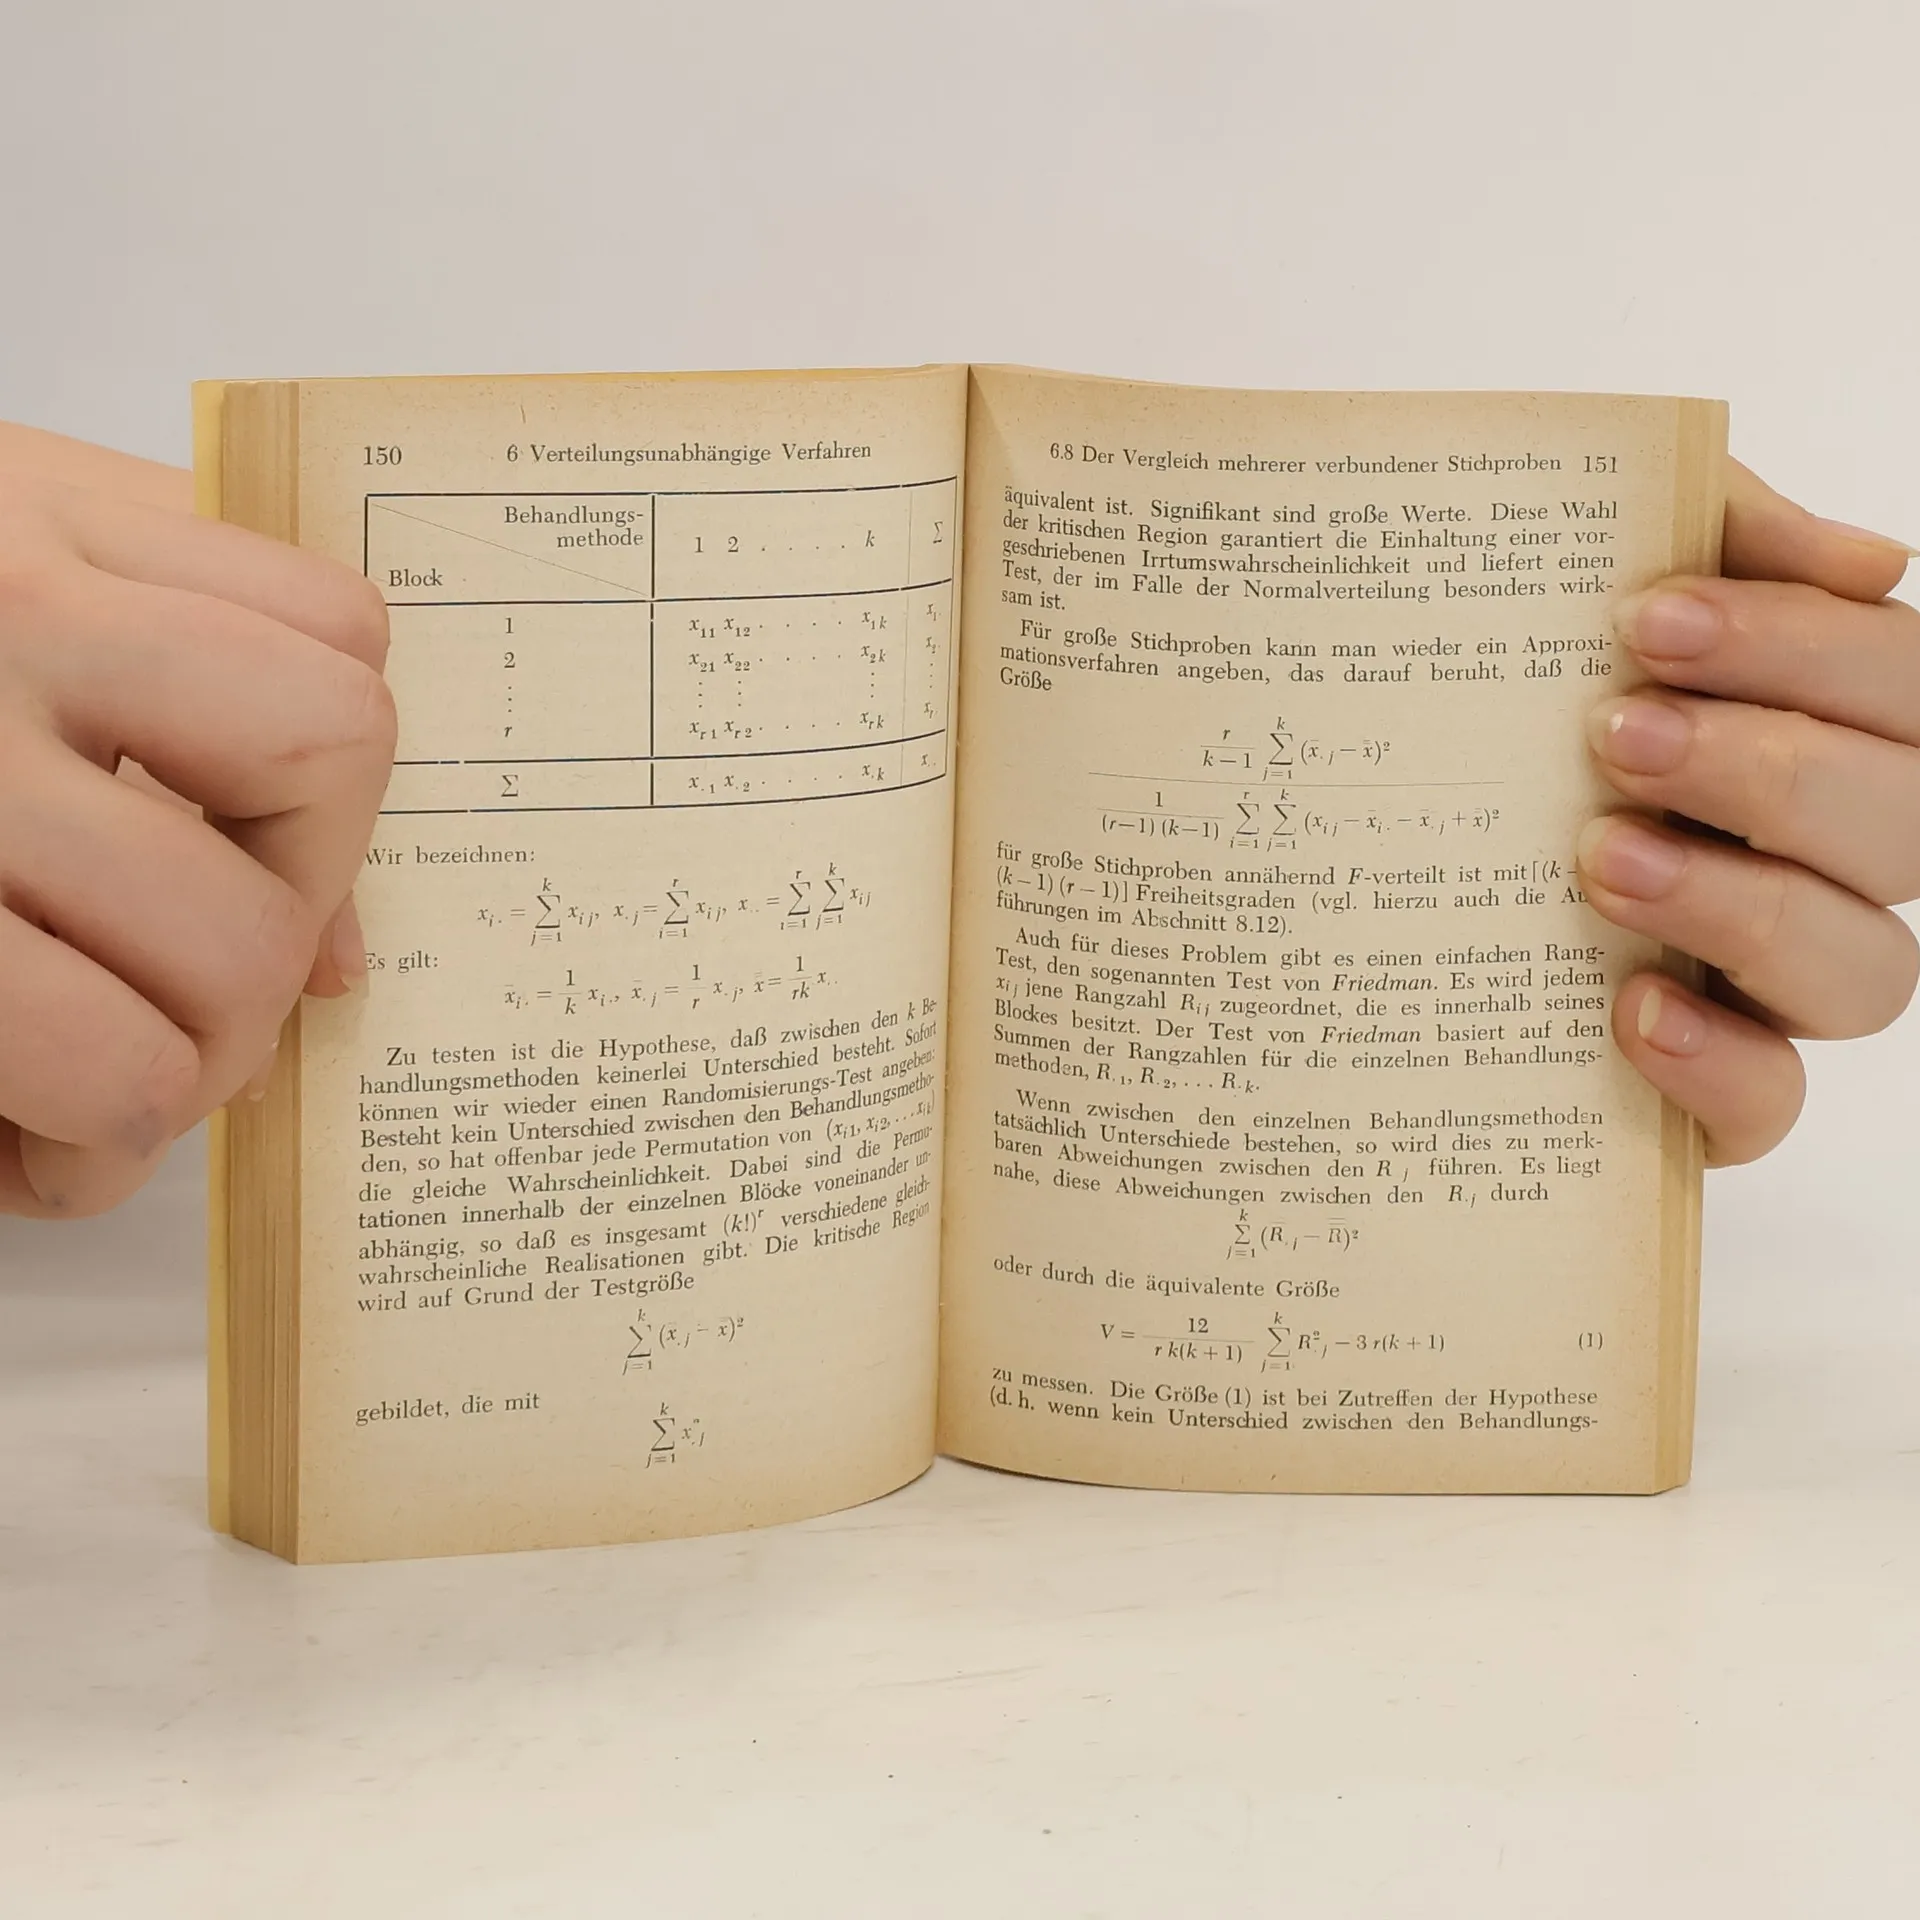 150 6 Verteilungsunabhängige Verfahren
Behandlungs-
methode
Block
1 2 . . . . k Σ
1 x₁₁ x₁₂ . . . . x₁ₖ x₁.
2 x₂₁ x₂₂ . . . . x₂ₖ x₂.
⋮ ⋮ ⋮ ⋮ ⋮
r xᵣ₁ xᵣ₂ . . . . xᵣₖ xᵣ.
Σ x.₁ x.₂ . . . . x.ₖ x..
Wir bezeichnen:
xᵢ. = Σ_{j=1}^{k} xᵢⱼ, x.ⱼ = Σ_{i=1}^{r} xᵢⱼ, x.. = Σ_{i=1}^{r} Σ_{j=1}^{k} xᵢⱼ
Es gilt:
x̄ᵢ. = 1/k xᵢ., x̄.ⱼ = 1/r x.ⱼ, x̿ = 1/rk x..
Zu testen ist die Hypothese, daß zwischen den k Be-
handlungsmethoden keinerlei Unterschied besteht. Sofort
können wir wieder einen Randomisierungs-Test angeben:
Besteht kein Unterschied zwischen den Behandlungsmetho-
den, so hat offenbar jede Permutation von (xᵢ₁, xᵢ₂, ... xᵢₖ)
die gleiche Wahrscheinlichkeit. Dabei sind die Permu-
tationen innerhalb der einzelnen Blöcke voneinander un-
abhängig, so daß es insgesamt (k!)ʳ verschiedene gleich-
wahrscheinliche Realisationen gibt. Die kritische Region
wird auf Grund der Testgröße
Σ_{j=1}^{k} (x̄.ⱼ − x̿)²
gebildet, die mit
Σ_{j=1}^{k} x².ⱼ
6.8 Der Vergleich mehrerer verbundener Stichproben 151
äquivalent ist. Signifikant sind große Werte. Diese Wahl
der kritischen Region garantiert die Einhaltung einer vor-
geschriebenen Irrtumswahrscheinlichkeit und liefert einen
Test, der im Falle der Normalverteilung besonders wirk-
sam ist.
Für große Stichproben kann man wieder ein Approxi-
mationsverfahren angeben, das darauf beruht, daß die
Größe
r/(k−1) Σ_{j=1}^{k} (x̄.ⱼ − x̿)²
1/((r−1)(k−1)) Σ_{i=1}^{r} Σ_{j=1}^{k} (xᵢⱼ − x̄ᵢ. − x̄.ⱼ + x̿)²
für große Stichproben annähernd F-verteilt ist mit [(k −
(k − 1) (r − 1)] Freiheitsgraden (vgl. hierzu auch die
führungen im Abschnitt 8.12).
Auch für dieses Problem gibt es einen einfachen Rang-
Test, den sogenannten Test von Friedman. Es wird jedem
xᵢⱼ jene Rangzahl Rᵢⱼ zugeordnet, die es innerhalb seines
Blockes besitzt. Der Test von Friedman basiert auf den
Summen der Rangzahlen für die einzelnen Behandlungs-
methoden, R.₁, R.₂, ... R.ₖ.
Wenn zwischen den einzelnen Behandlungsmethoden
tatsächlich Unterschiede bestehen, so wird dies zu merk-
baren Abweichungen zwischen den R ⱼ führen. Es liegt
nahe, diese Abweichungen zwischen den R.ⱼ durch
Σ_{j=1}^{k} (R̄.ⱼ − R̿)²
oder durch die äquivalente Größe
V = 12/(r k(k + 1)) Σ_{j=1}^{k} R².ⱼ − 3 r(k + 1) (1)
zu messen. Die Größe (1) ist bei Zutreffen der Hypothese
(d. h. wenn kein Unterschied zwischen den Behandlungs-